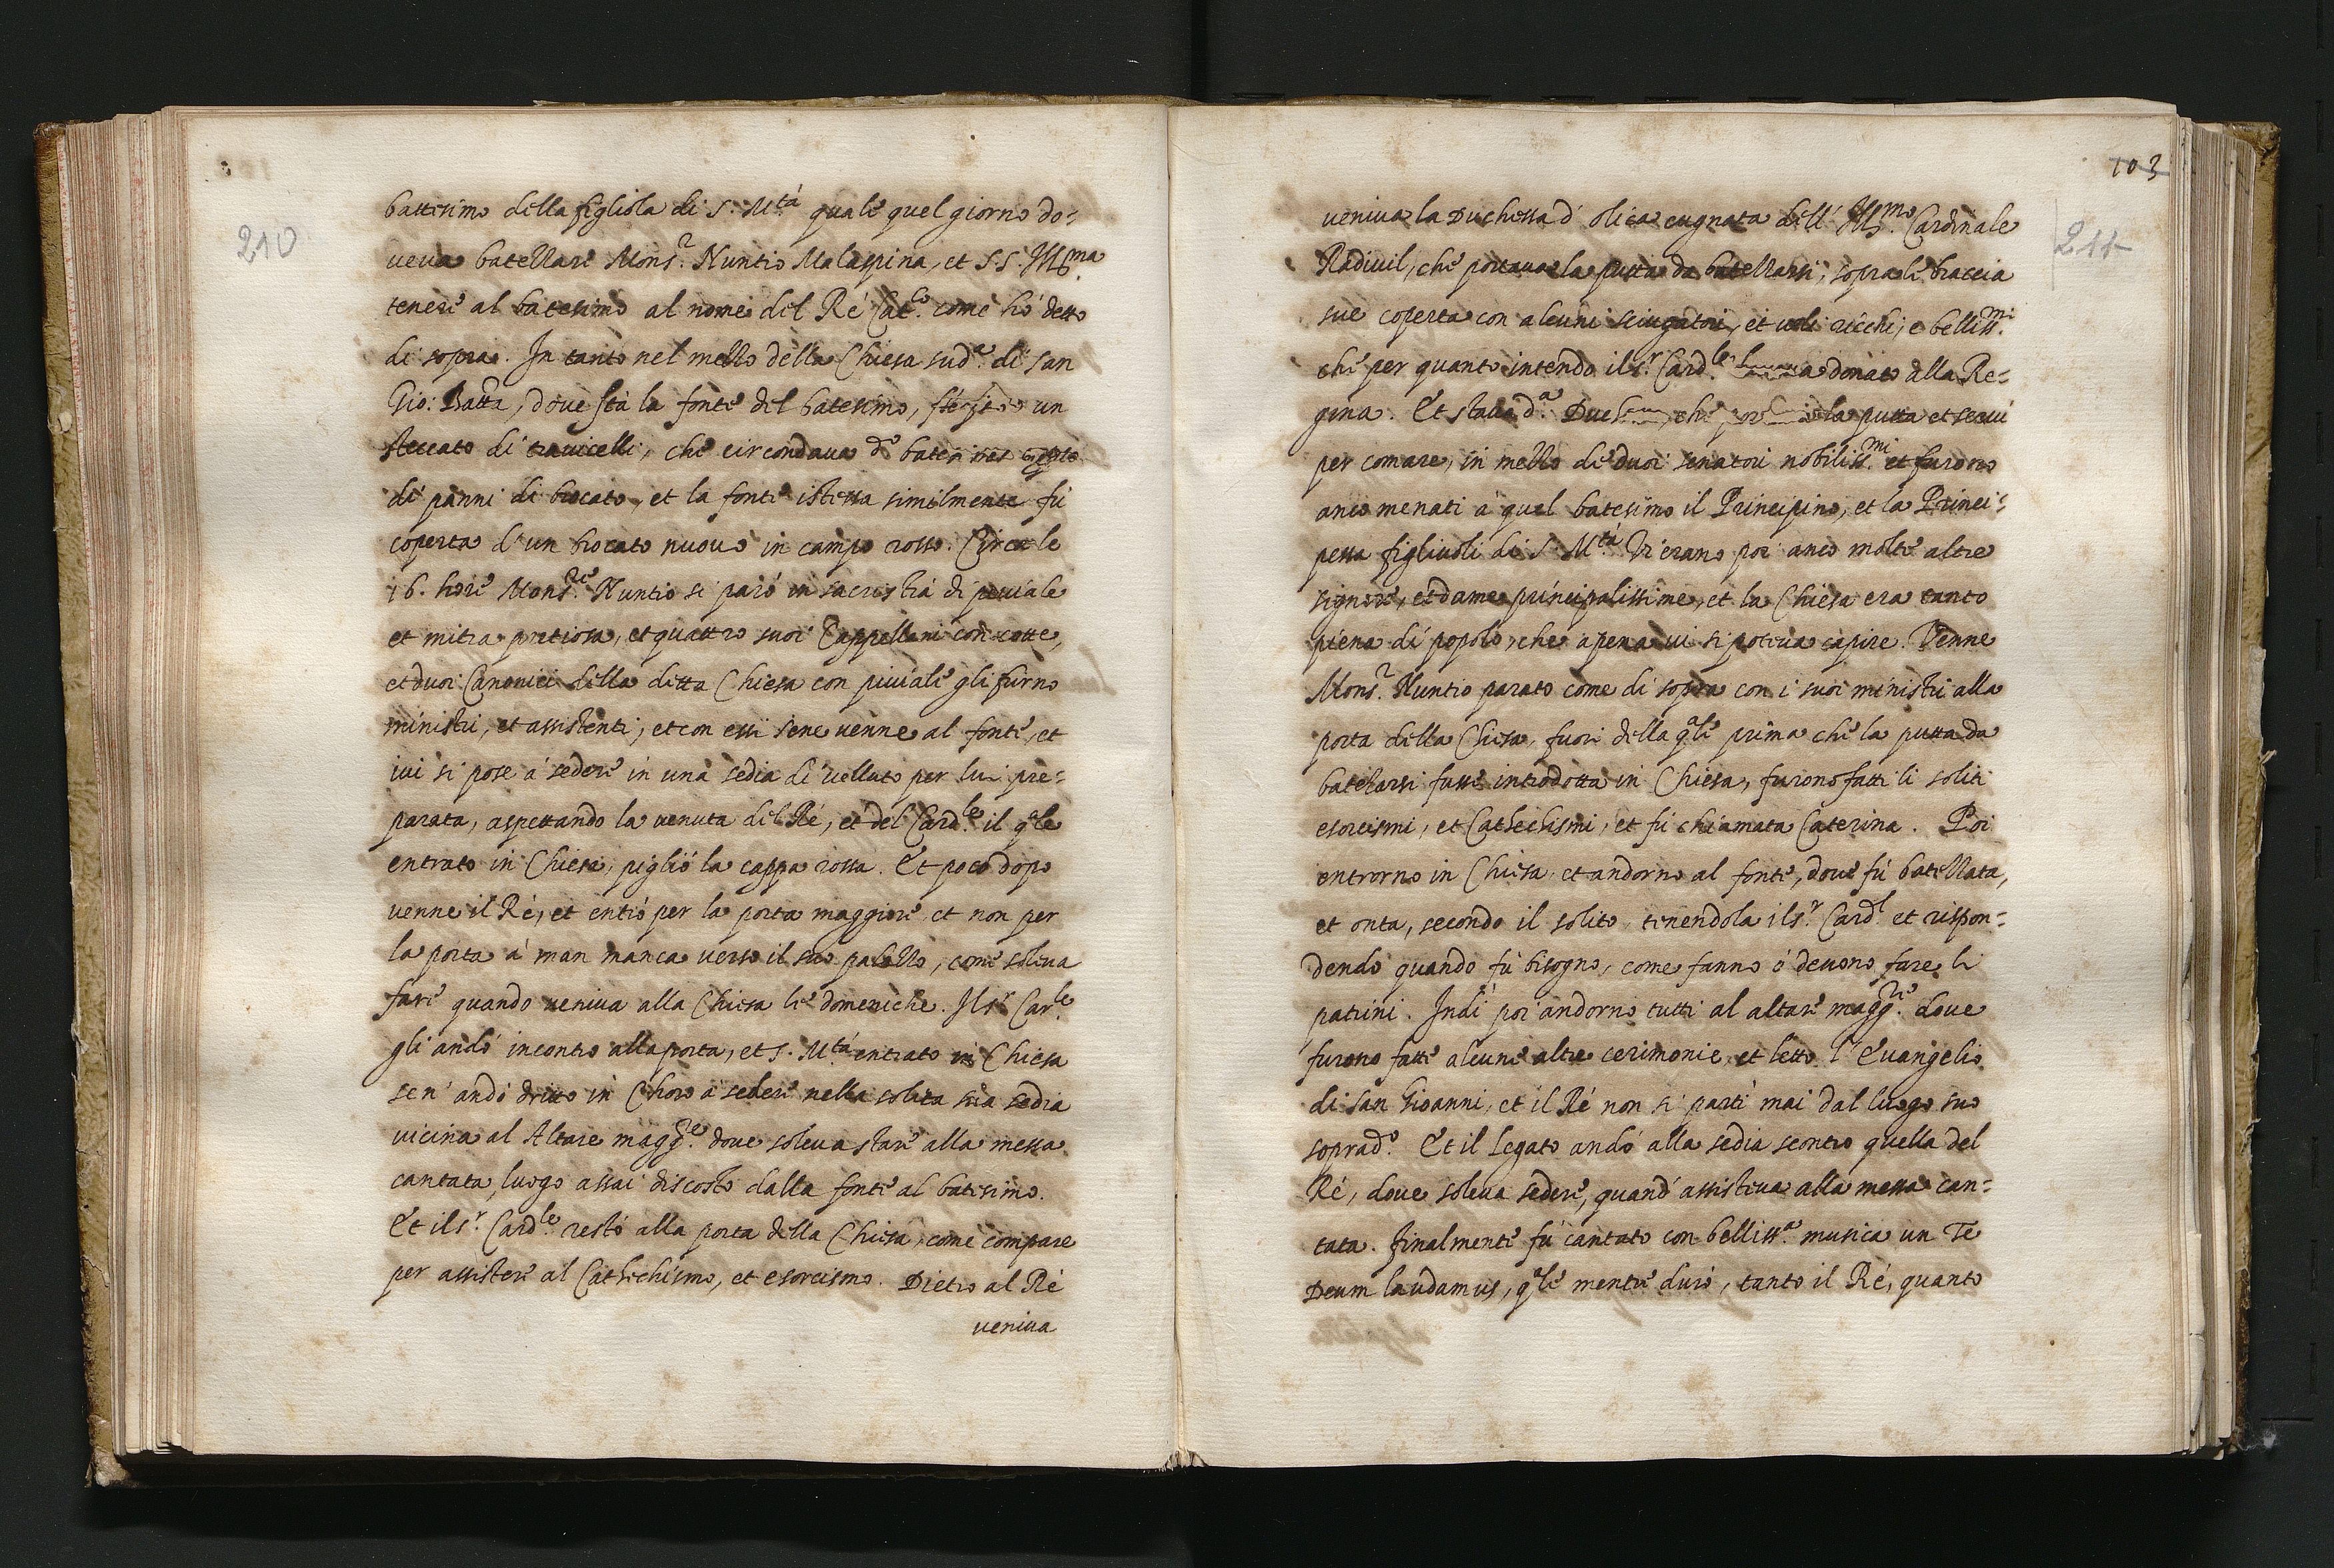 210
battesimo della figliola di S. M.tà quale quel giorno do=
veva batezzare Mons.r Nuntio Malaspina, et S.S. Ill.ma
tenere al batesimo al nome del Ré Cat.co come hó detto
di sopra. In tanto nel mezzo della Chiesa sud.a di san
Gio: Batta, dove stà la fonte del batesimo, un
steccato di travicelli, che circondava d.o
di panni di brocato, et la fonte istessa similmente fù
coperta d'un brocato nuovo in campo rosso. Circa le
16. hore Mons.re Nuntio si paró in sacrestia di piviale
et mitra pretiosa, et quattro suoi Cappellani con cotte,
et duoi Canonici della detta Chiesa con piviale gli furno
ministri, et assistenti; et con essi sene venne al fonte, et
ivi si pose á sedere in una sedia di velluto per lui pre=
parata, aspettando la venuta del Ré, et del Card.le il q.le
entrato in Chiesa, piglió la cappa rossa. Et poco dopo
venne il Ré, et entró per la porta maggiore et non per
la porta á man manca verso il suo palazzo, come soleva
fare quando veniva alla Chiesa le domeniche. Il s.r Car.le
gli andó incontro alla porta, et S. M.tà entrato in Chiesa
se n'andó dritto in Choro á sedere nella solita sua sedia
vicina al Altare magg.re dove soleva stare alla messa
cantata, luogo assai discosto dalla fonte al batesimo.
Et il s.r Card.le restó alla porta della Chiesa, come compare
per assistere al Cathechismo, et esorcismo. Dietro al Ré
veniva
103
211
veniva la Duchessa d'Olica cugnata dell'Ill.mo Cardinale
Radivil, che portava la putta da batezzarsi, sopra le braccia
sue coperta con alcuni sciugatori, et veli ricchi, e belliss.mi
che per quanto intendo il s.r Card.le donato alla Re=
gina. Et stava d.a che la putta et servì
per comare, in mezzo di duoi senatori nobiliss.mi et furono
anco menati á quel batesimo il Principino, et la Princi=
pessa figliuoli di S. M.tà Vi erano poi anco molte altre
signore, et dame principalissime, et la Chiesa era tanto
piena di popolo, che apena vi si poteva capire. Venne
Mons.r Nuntio parato come di sopra con i suoi ministri alla
porta della Chiesa, fuori della q.le prima che la putta da
batezarsi fusse introdotta in Chiesa, furono fatti li soliti
esorcismi, et Cathechismi, et fù chiamata Caterina. Poi
entrorno in Chiesa, et andorno al fonte, dove fù batezzata,
et onta, secondo il solito, tenendola il s.r Card.l et rispon=
dendo quando fù bisogno, come fanno ó devono fare li
patrini. Indi poi andorno tutti al altare magg.re dove
furono fatte alcune altre cerimonie, et letto l'Evangelio
di san Gioanni, et il Ré non si partì mai dal luogo suo
soprad.o Et il legato andó alla sedia scontro quella del
Ré, dove soleva sedere, quand'assisteva alla messa can=
tata. Finalmente fù cantato con belliss.a musica un Te
Deum laudamus, q.le mentre duró, tanto il Ré, quanto